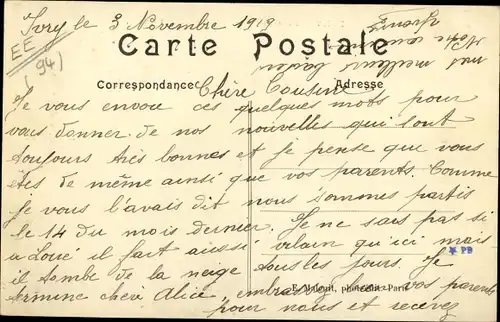 Ivry le 3 Novembre 1919
EE
(94)
Carte Postale
Correspondance
Adresse
Chère Cousine
Je vous envoie ces quelques mots pour
vous donner de nos nouvelles qui sont
toujours très bonnes et je pense que vous
êtes de même ainsi que vos parents. Comme
je vous l'avais dit nous sommes partis
le 14 du mois dernier. Je ne sais pas si
a Loué il fait aussi vilain qu'ici mais
il tombe de la neige tous les jours. Je
termine chère Alice embrassez vos parents
pour nous et recevez
nos meilleurs baisers
Votre
* PB
E. Malcuit, phot-édit.-Paris